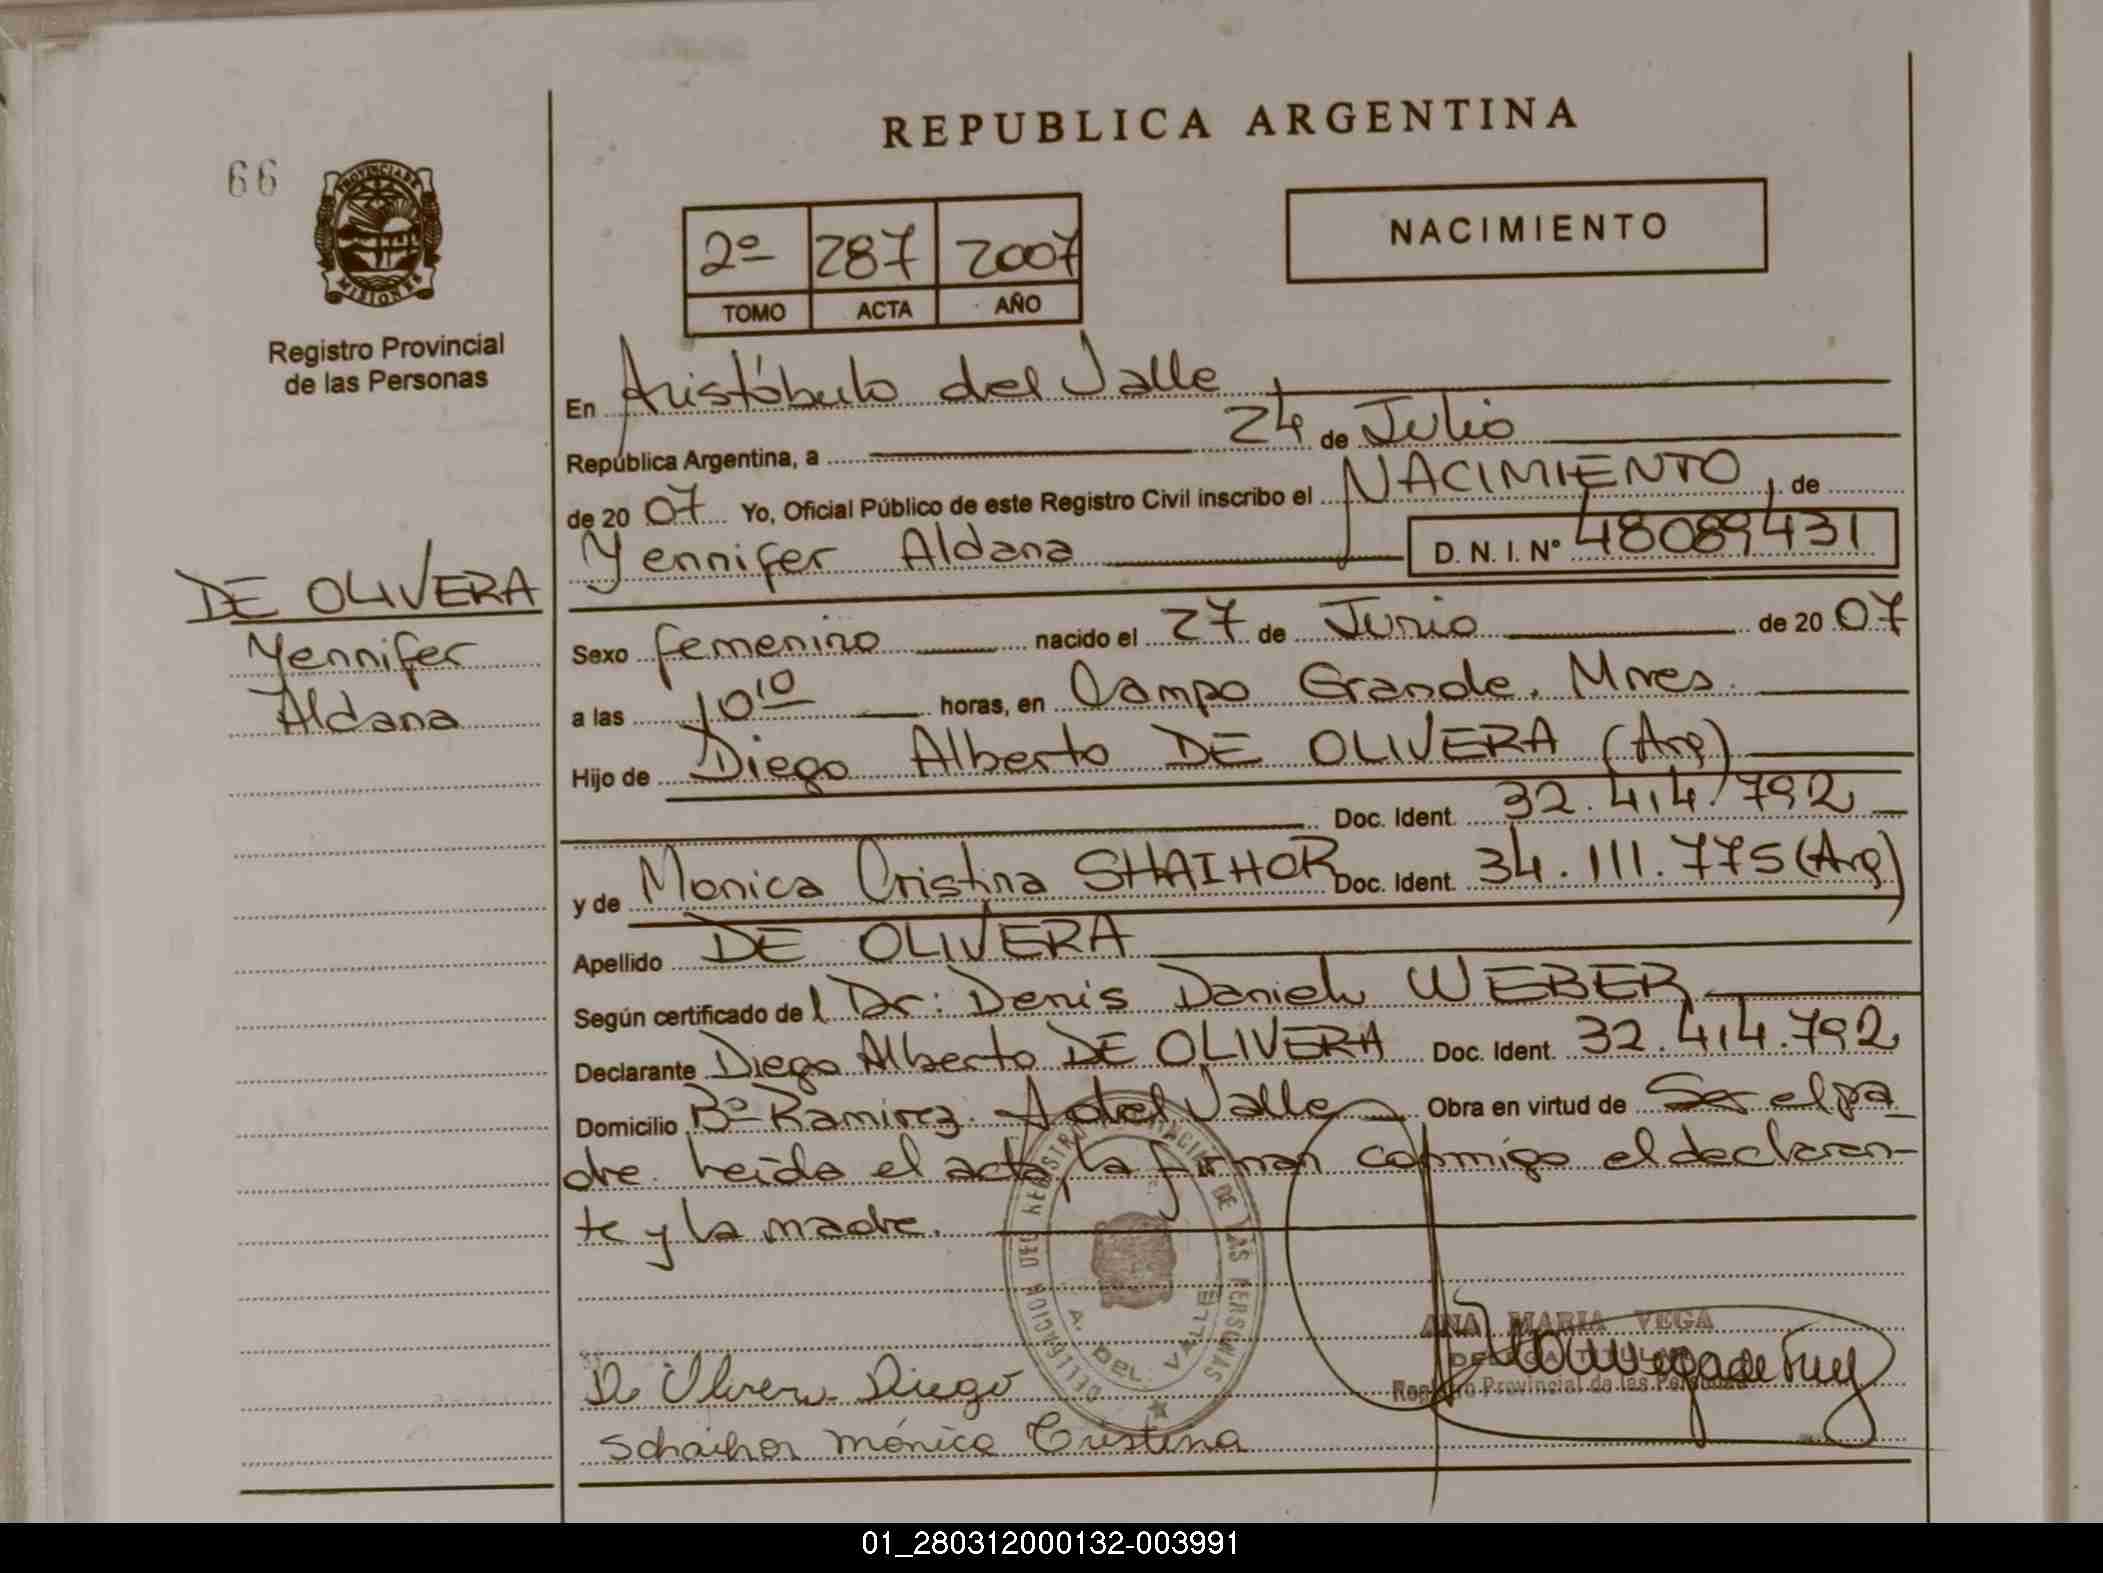 REPUBLICA ARGENTINA
66
PROVINCIA DE
MISIONES
Registro Provincial
de las Personas
2º 287 2007
TOMO ACTA AÑO
NACIMIENTO
En Aristóbulo del Valle
República Argentina, a 24 de Julio
de 20 07 Yo, Oficial Público de este Registro Civil inscribo el NACIMIENTO, de
Yennifer Aldana D.N.I. Nº 48089431
DE OLIVERA
Yennifer
Aldana
Sexo femenino nacido el 27 de Junio de 20 07
a las 10 10 horas, en Campo Grande, Mnes.
Hijo de Diego Alberto DE OLIVERA (Arg)
Doc. Ident. 32.414.792
y de Monica Cristina SHAIHOR Doc. Ident. 34.111.775 (Arg)
Apellido DE OLIVERA
Según certificado del Dr: Denis Daniel WEBER
Declarante Diego Alberto DE OLIVERA Doc. Ident. 32.414.792
Domicilio Bº Ramirez. A del Valle Obra en virtud de Ser el pa
dre. Leida el acta, la firman conmigo el declaran-
te y la madre.
DELEGACION DEL REGISTRO DE LAS PERSONAS
A. DEL VALLE
ANA MARIA VEGA
DELEGADA TITULAR
Registro Provincial de las Personas
De Olivera Diego
Schaihor mónica Cristina
01_280312000132-003991